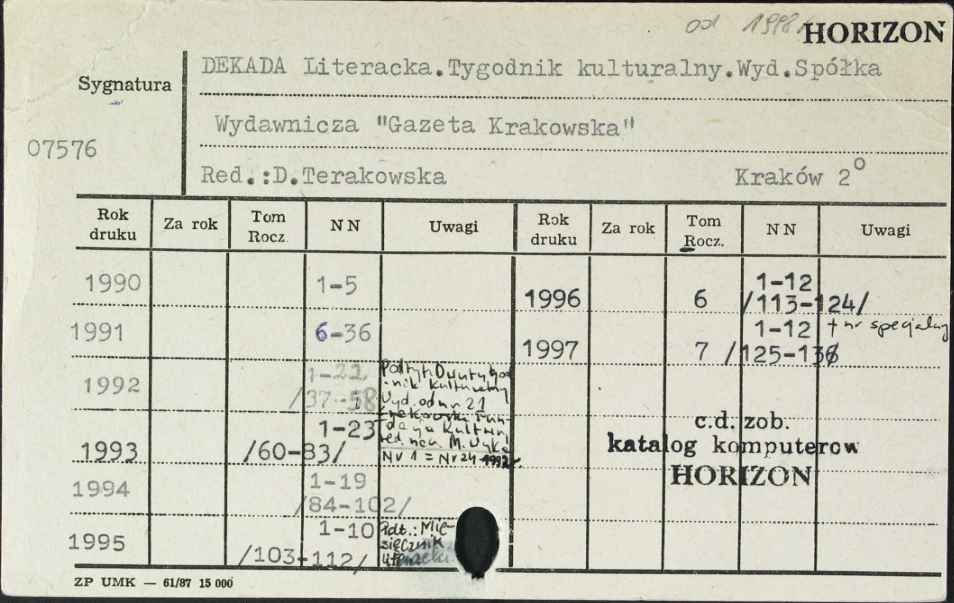 od 1998r. HORIZON
Sygnatura
07576
DEKADA Literacka.Tygodnik kulturalny.Wyd.Spółka
Wydawnicza "Gazeta Krakowska"
Red.:D.Terakowska Kraków 2°
Rok druku Za rok Tom Rocz. N N Uwagi Rok druku Za rok Tom Rocz. N N Uwagi
1990 1-5
1991 6-36
1992 1-22 /37-58
Podtyt: Dwutygod
-nik kulturalny
Wyd. od nr 21
Krakowska Fun
dacja Kultury
red. nacz. M.
Nr 1 = Nr 24 1992r.
1993 1-23 /60-83/
1994 1-19 /84-102/
1995 1-10 /103-112/
Podt.: Mie-
sięcznik
literacki
1996 6 1-12 /113-124/
1997 7 1-12 /125-136 + nr specjalny
c.d. zob.
katalog komputerow
HORIZON
ZP UMK — 61/87 15 000